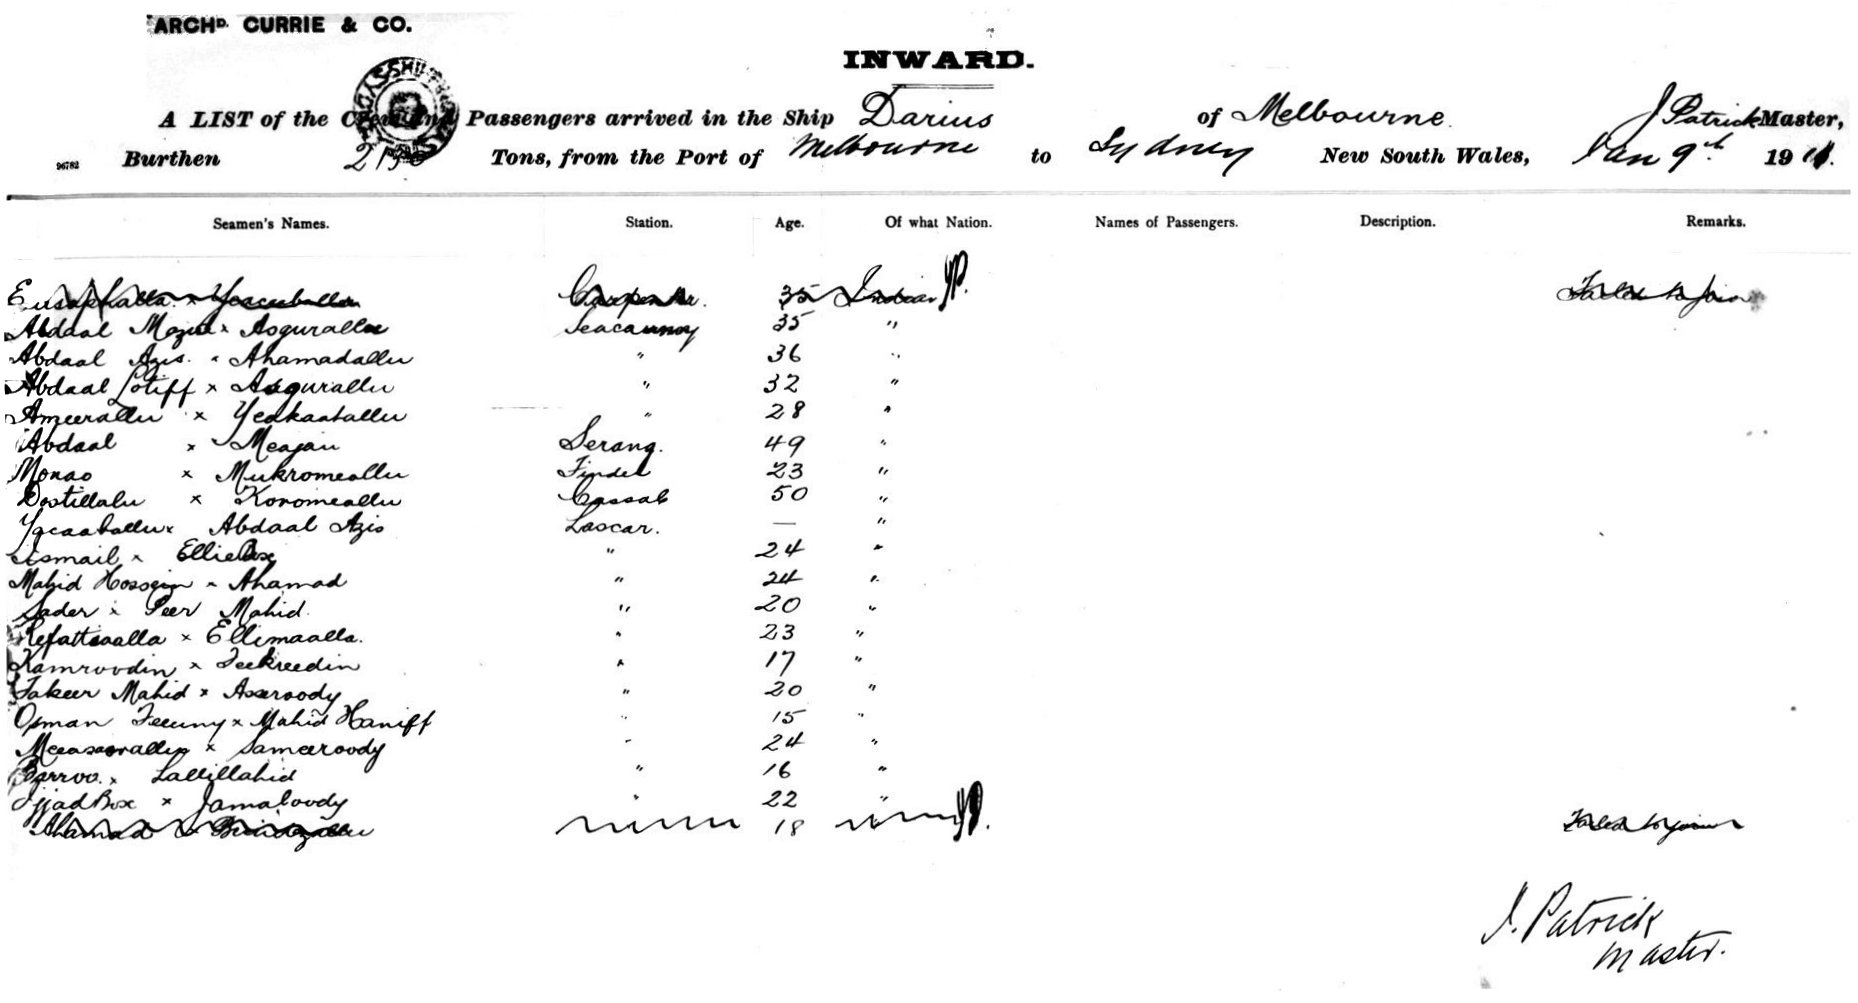 ARCHD. CURRIE & CO.
INWARD.
A LIST of the Crew and Passengers arrived in the Ship Darius of Melbourne J Patrick Master,
96782 Burthen Tons, from the Port of Melbourne to Sydney New South Wales, Jan 9th 1911.
Seamen's Names. Station. Age. Of what Nation. Names of Passengers. Description. Remarks.
x Carpenter. 35 Indian JP. Failed to join
Abdaal x Asgurallee Seacunny 35 "
Abdaal Azis x Ahamadallu " 36 "
Abdaal Lotiff x Asgurallu " 32 "
Ameerallu x Yeakaaballu " 28 "
Abdaal x Meajan Serang. 49 "
Monao x Mukromeallu Tindel 23 "
Dostillalu x Koromeallu Cassab 50 "
Yacaaballu x Abdaal Azis Lascar. — "
Ismail x Ellie Box " 24 "
Mahid Hossein x Ahamad " 24 "
Sader x Peer Mahid. " 20 "
Refattaalla x Ellimaalla. " 23 "
Kamroodin x Feekreedin " 17 "
Fakeer Mahid x Aseroody " 20 "
Osman x Mahid Haniff " 15 "
x Sameeroody " 24 "
Barroo. x Lallillahid " 16 "
Ijjad Box x Jamaloody " 22 "
Ahamad x 18 " JP. Failed to join
J. Patrick
Master.